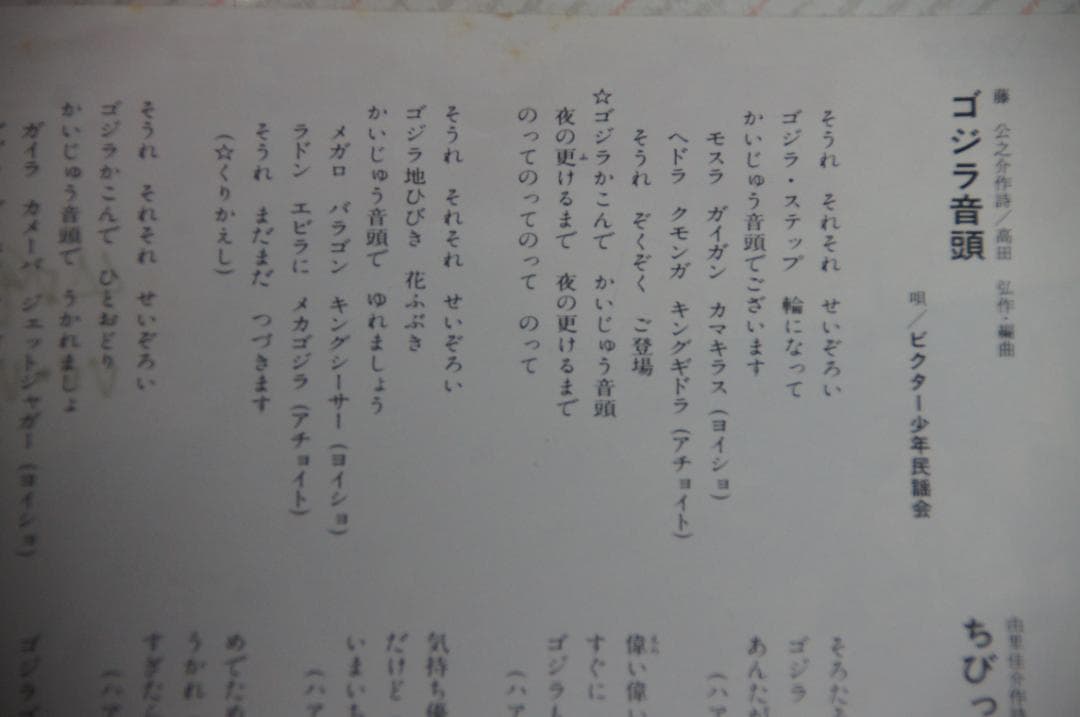 藤 公之介作詩/高田 弘作・編曲
ゴジラ音頭
唄/ビクター少年民謡会
そうれ それそれ せいぞろい
ゴジラ・ステップ 輪になって
かいじゅう音頭でございます
モスラ ガイガン カマキラス(ヨイショ)
ヘドラ クモンガ キングギドラ(アチョイト)
そうれ ぞくぞく ご登場
☆ゴジラかこんで かいじゅう音頭
夜の更けるまで 夜の更けるまで
のってのってのって のって
そうれ それそれ せいぞろい
ゴジラ地ひびき 花ふぶき
かいじゅう音頭で ゆれましょう
メガロ バラゴン キングシーサー(ヨイショ)
ラドン エビラに メカゴジラ(アチョイト)
そうれ まだまだ つづきます
(☆くりかえし)
そうれ それそれ せいぞろい
ゴジラかこんで ひとおどり
かいじゅう音頭で うかれましょ
ガイラ カメーバ ジェットジャガー(ヨイショ)
由里佳介作詩
ちびっ
そろたそ
ゴジラ
あんたが
(ハア
偉い偉い
すぐに
ゴジラも
(ハア
気持ち優
だけど
いまいち
(ハア
めでため
うかれ
すぎたら
(ハア
ゴジラ